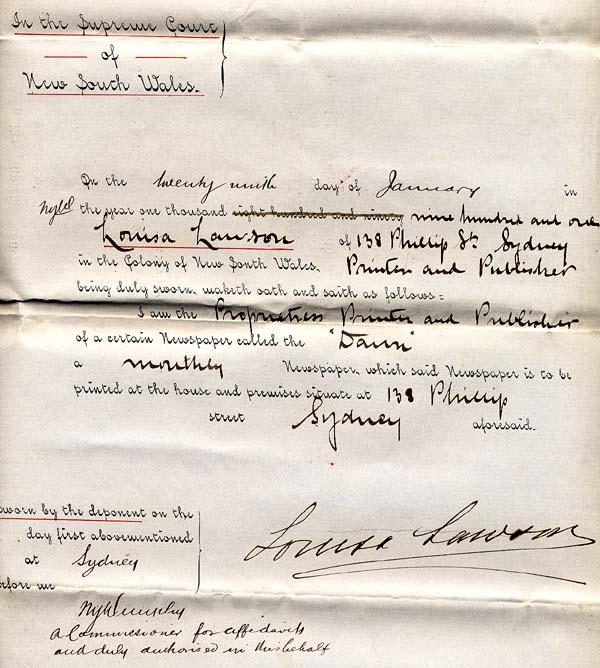 In the Supreme Court
of
New South Wales.
On the twenty ninth day of January in
the year one thousand eight hundred and ninety nine hundred and one
Louisa Lawson of 138 Phillip St Sydney
in the Colony of New South Wales. Printer and Publisher
being duly sworn, maketh oath and saith as follows:
I am the Proprietress Printer and Publisher
of a certain Newspaper called the "Dawn"
a monthly Newspaper, which said Newspaper is to be
printed at the house and premises situate at 138 Phillip
street Sydney aforesaid.
sworn by the deponent on the
day first abovementioned
at Sydney
before me
Louisa Lawson
a Commissioner for affidavits
and duly authorised in this behalf